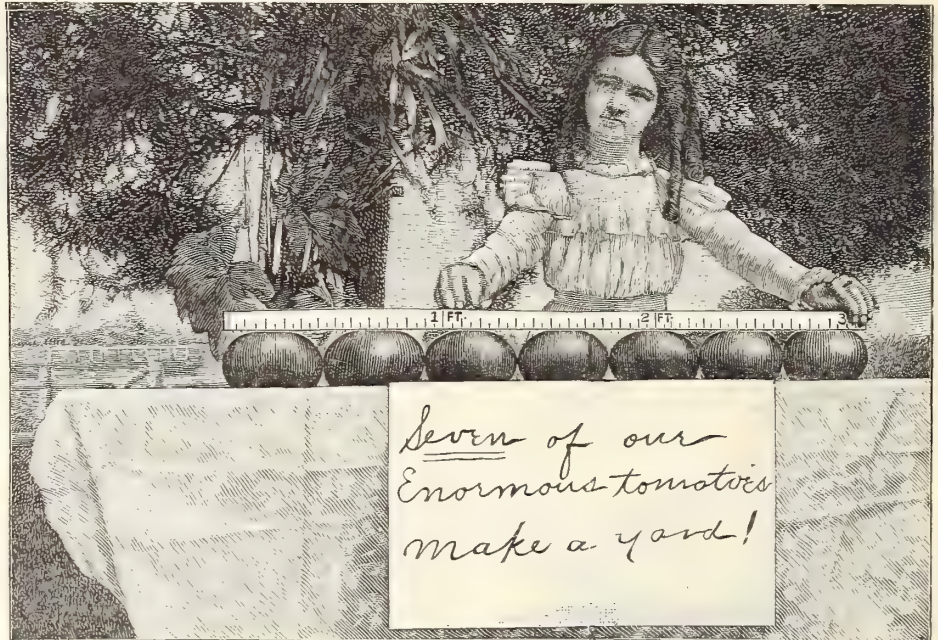 1 FT. 2 FT. 3
Seven of our
Enormous tomatoes
make a yard!